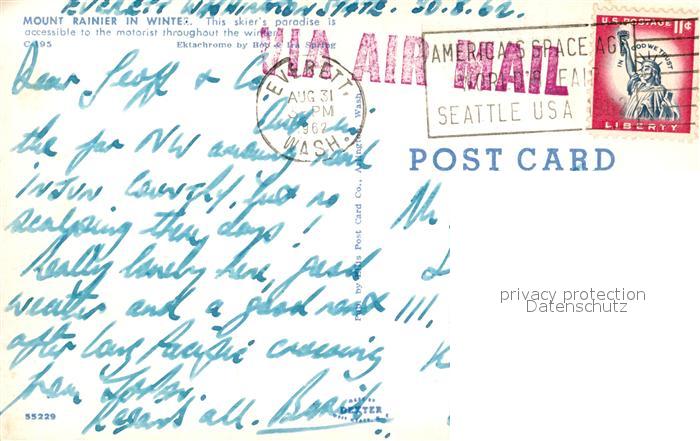 Everett Washington State. 30.8.62.
MOUNT RAINIER IN WINTER. This skier's paradise is
accessible to the motorist throughout the winter.
C-195 Ektachrome by Bob & Ira Spring
VIA AIR MAIL
EVERETT, WASH.
AUG 31
PM
1962
AMERICA'S SPACE AGE
WORLD'S FAIR
SEATTLE USA
U.S. POSTAGE 11¢
IN GOD WE TRUST
LIBERTY
POST CARD
Dear Geoff & Co.
in
the far NW around and
Injun country, but no
scalping these days!
Really lovely here, good
weather and a good rest
after long Pacific crossing
from
Regards all.
M
111,
Pub. by Ellis Post Card Co., Arlington, Wash.
privacy protection
Datenschutz
55229
MADE BY
DEXTER